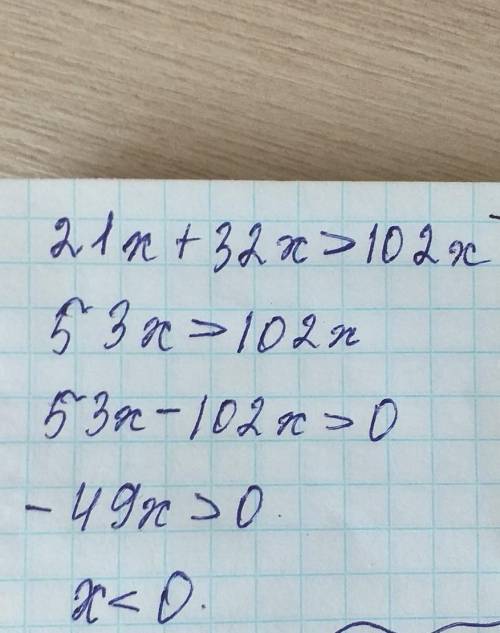 21x+32x>102x
53x>102x
53x-102x>0
-49x>0.
x<0.